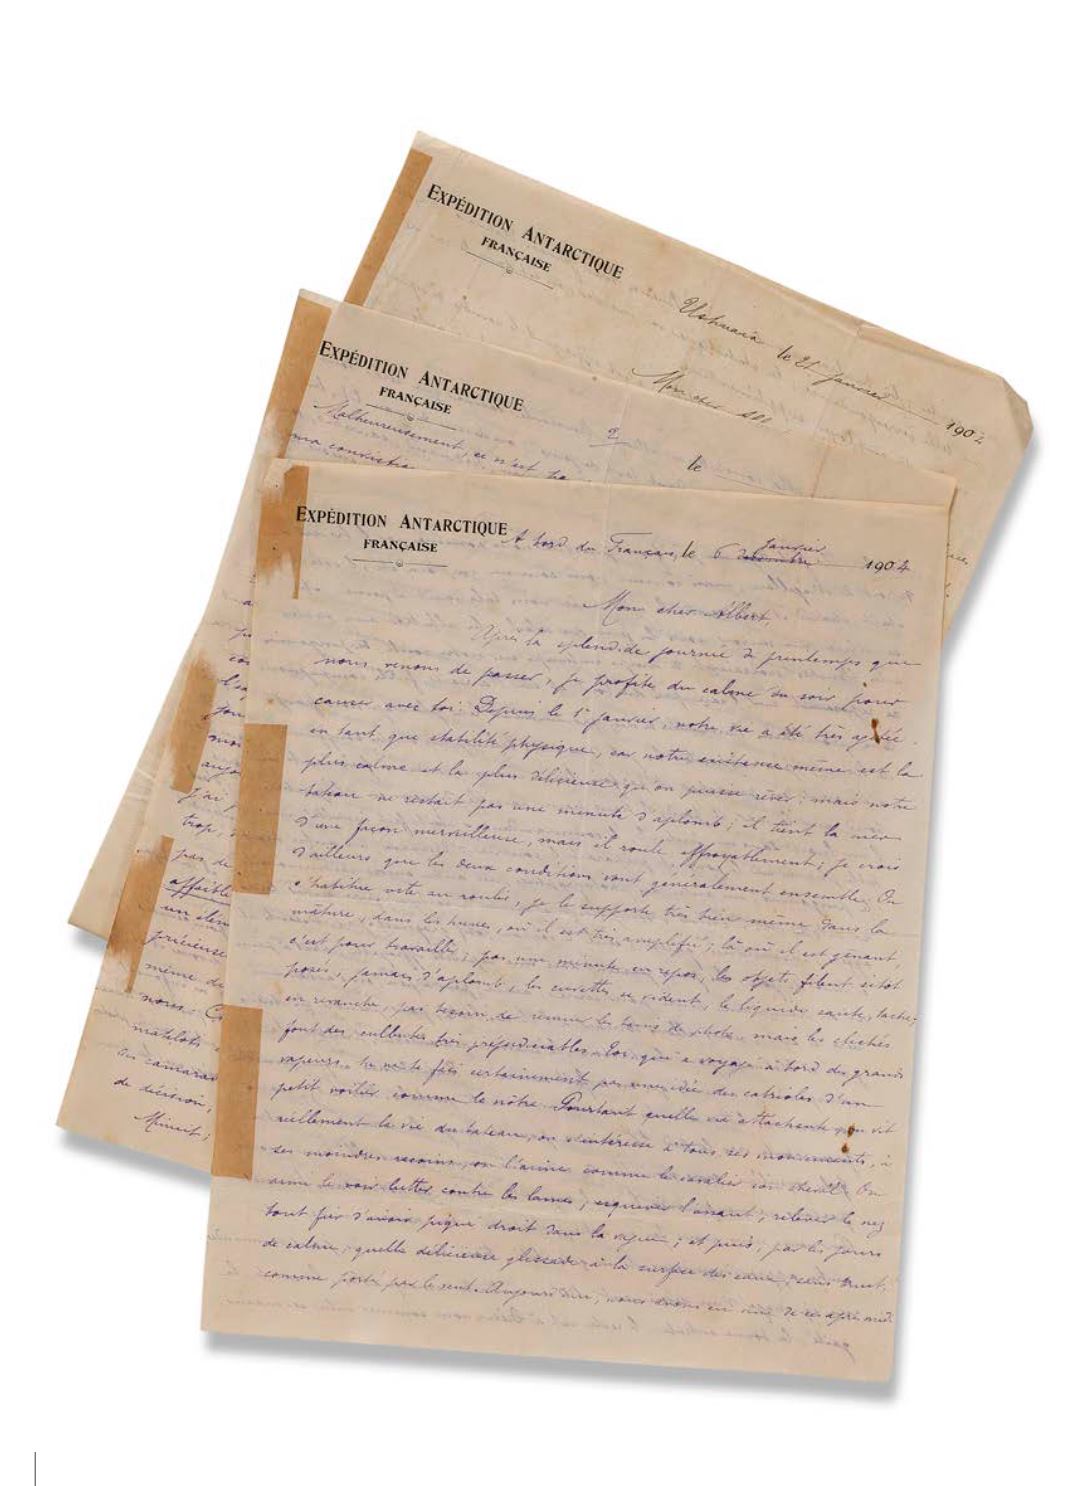 EXPÉDITION ANTARCTIQUE
FRANÇAISE
Ushuaia le 21 janvier 1904
Mon cher All
EXPÉDITION ANTARCTIQUE
FRANÇAISE
2
le
Malheureusement, ce n'est pa
ma convictio
EXPÉDITION ANTARCTIQUE
FRANÇAISE
A bord du Français, le 6 janvier 1904
Mon cher Albert,
Après la splendide journée de printemps que
nous venons de passer, je profite du calme du soir pour
causer avec toi. Depuis le 1er janvier, notre vie a été très agitée
en tant que stabilité physique, car notre existence même est la
plus calme et la plus délicieuse qu'on puisse rêver; mais notre
bateau ne restait pas une minute d'aplomb; il tient la mer
d'une façon merveilleuse, mais il roule effroyablement; je crois
d'ailleurs que les deux conditions vont généralement ensemble. On
s'habitue vite au roulis, je le supporte très bien même dans la
mâture, dans les hunes, où il est très amplifié; là où il est gênant,
c'est pour travailler; pas une minute en repos, les objets filent sitôt
posés, jamais d'aplomb, les cuvettes se vident, le liquide saute, tache;
en revanche, pas besoin de remuer les bains de photo, mais les clichés
font des culbutes très préjudiciables. Toi qui a voyagé à bord des grands
vapeurs, tu ne te fais certainement pas une idée des cabrioles d'un
petit voilier comme le nôtre. Pourtant quelle vie attachante qu'on vit
réellement la vie du bateau, on s'intéresse à tous ses mouvements, à
ses moindres recoins, on l'aime comme le cavalier son cheval. On
aime le voir lutter contre les lames, esquiver l'assaut, relever le nez
tout fier d'avoir piqué droit dans la vague; et puis, par les jours
de calme, quelle délicieuse glissade à la surface des eaux, sans bruit,
comme porté par le vent. Aujourd'hui, nous avons eu une de ces après midi
trop,
pas de
affaibli
un élém
précieuse
même de
nous. Co
matelots
un camarad
de décision,
Minuit;